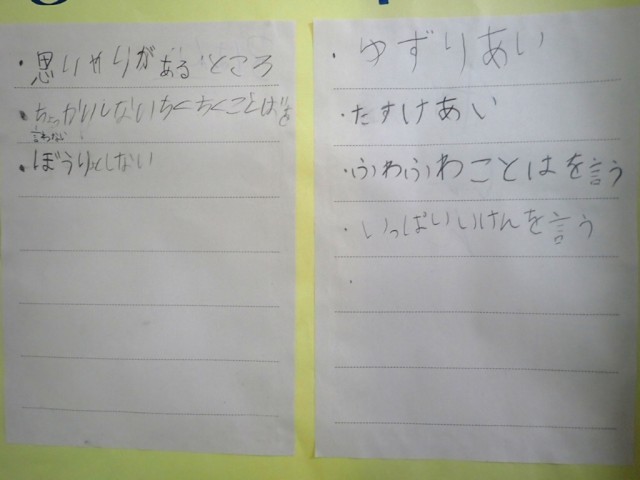 ・思いやりがあるところ
・ちょっかいしないちくちくことばを
言わない
・ぼうりょくしない
・ゆずりあい
・たすけあい
・ふわふわことはを言う
・いっぱいいけんを言う
・